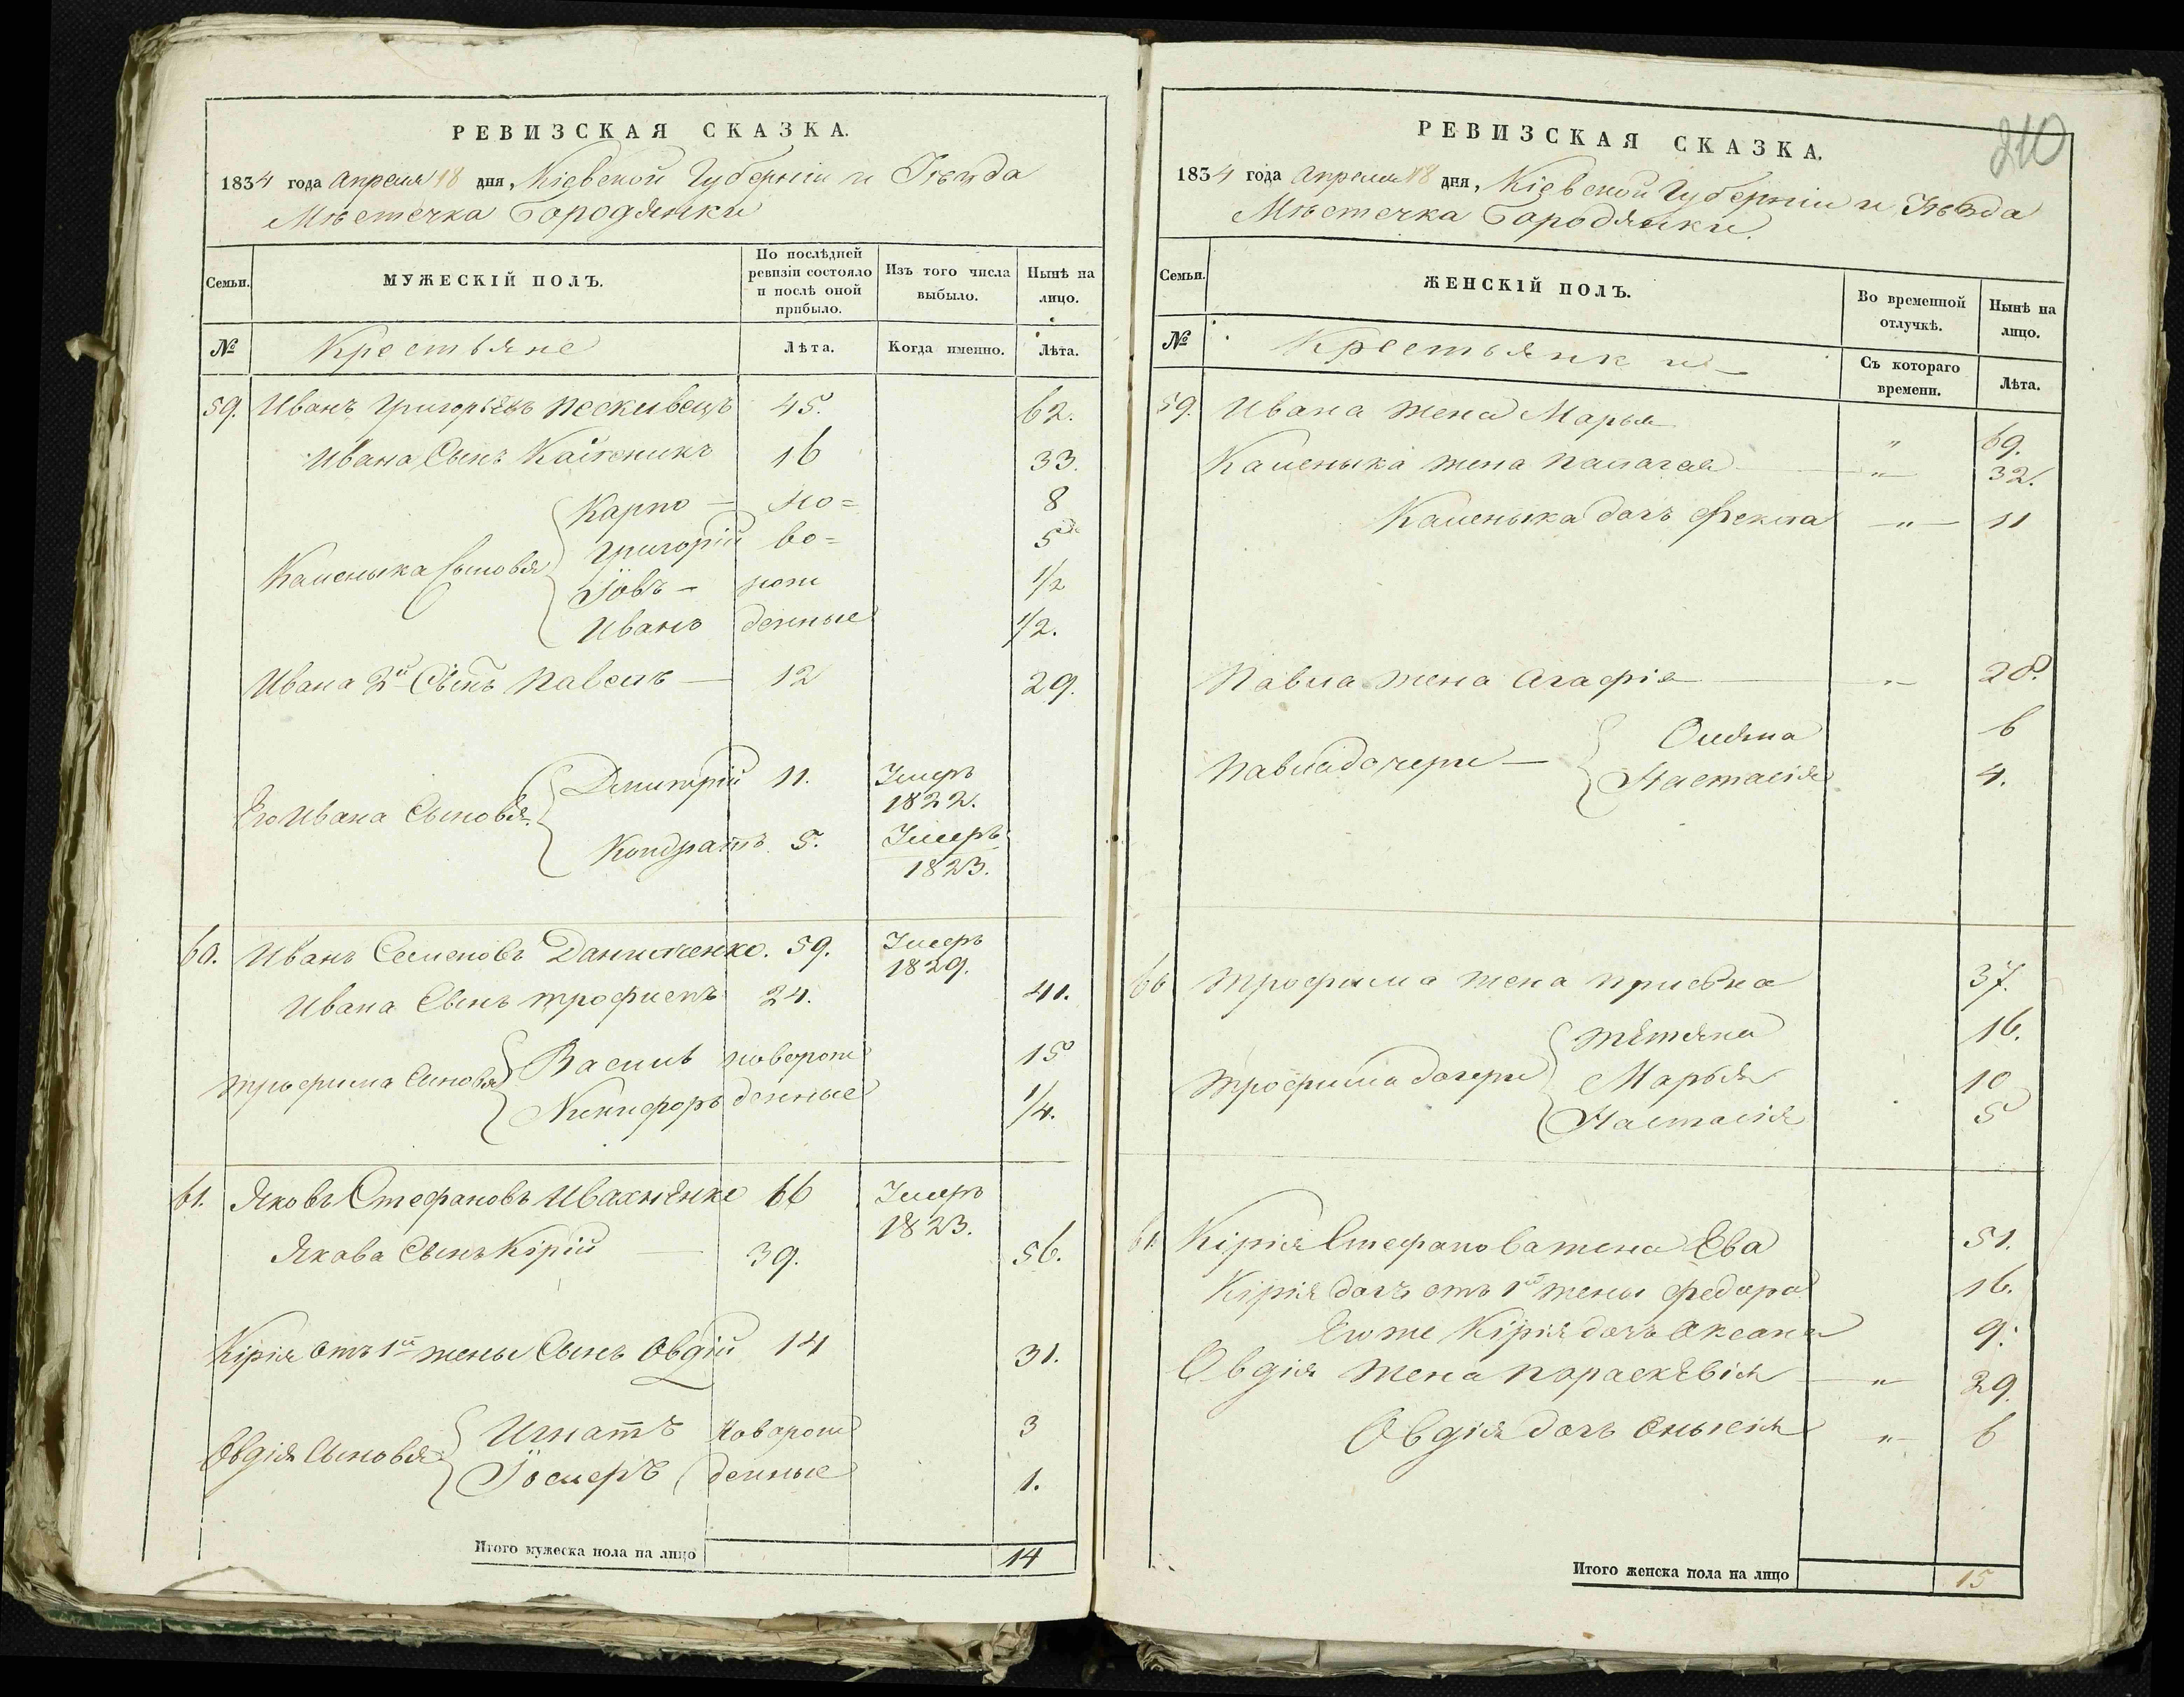 РЕВИЗСКАЯ СКАЗКА.
1834 года Апреля 18 дня, Кіевской Губерніи и Уезда
Мѣстечка Бородянки
Семьи. МУЖЕСКІЙ ПОЛЪ. По послѣдней ревизіи состояло и послѣ оной прибыло. Изъ того числа выбыло. Нынѣ на лицо.
№ Крестьяне Лѣта. Когда именно. Лѣта.
59. Иванъ Григорьевъ Пескивецъ 45. 62.
Ивана Сынъ Каленикъ 16 33.
Каленыка Сыновья Карпо — но= 8
Григорій во= 5
Іовъ — рож 1/2
Иванъ денные 1/2.
Ивана 2й Сынъ Павелъ — 12 29.
Его Ивана Сыновья Дмитрій 11. Умеръ 1822.
Кондратъ 5. Умеръ 1823.
60. Иванъ Семеновъ Данильченко. 59. Умеръ 1829.
Ивана Сынъ Трофимъ 24. 41.
Трофима Сыновья Василь новорож 15
Никифоръ денные 1/4.
61. Яковъ Стефановъ Ивахненко 66 Умеръ 1823.
Якова Сынъ Кірій 39. 56.
Кірія отъ 1й жены Сынъ Овдій 14 31.
Овдія Сыновья Игнатъ Новорож 3
денные 1.
Итого мужеска пола на лицо 14
210
РЕВИЗСКАЯ СКАЗКА.
1834 года Апреля 18 дня, Кіевской Губерніи и Уезда
Мѣстечка Бородянки.
Семьи. ЖЕНСКІЙ ПОЛЪ. Во временной отлучкѣ. Нынѣ на лицо.
№ Крестьянки Съ котораго времени. Лѣта.
59. Ивана жена Марья „ 69.
Каленыка жена Палагея — „ — 32.
Каленыка дочь Фекла — „ — 11
Павла жена Агафія — „ — 28.
Павла дочери — Оляна 6
Настасія 4.
60 Трофима жена Присьна 37.
Трофима дочери Тетяна 16.
Марья 10
Настасія 5
61. Кірія Стефанова жена Ева 51.
Кірія дочь отъ 1й жены Федора 16.
Его же Кірія дочь Оксана 9.
Овдія жена Параскевія — „ — 29.
Овдія дочь Онысія „ — 6
Итого женска пола на лицо 15